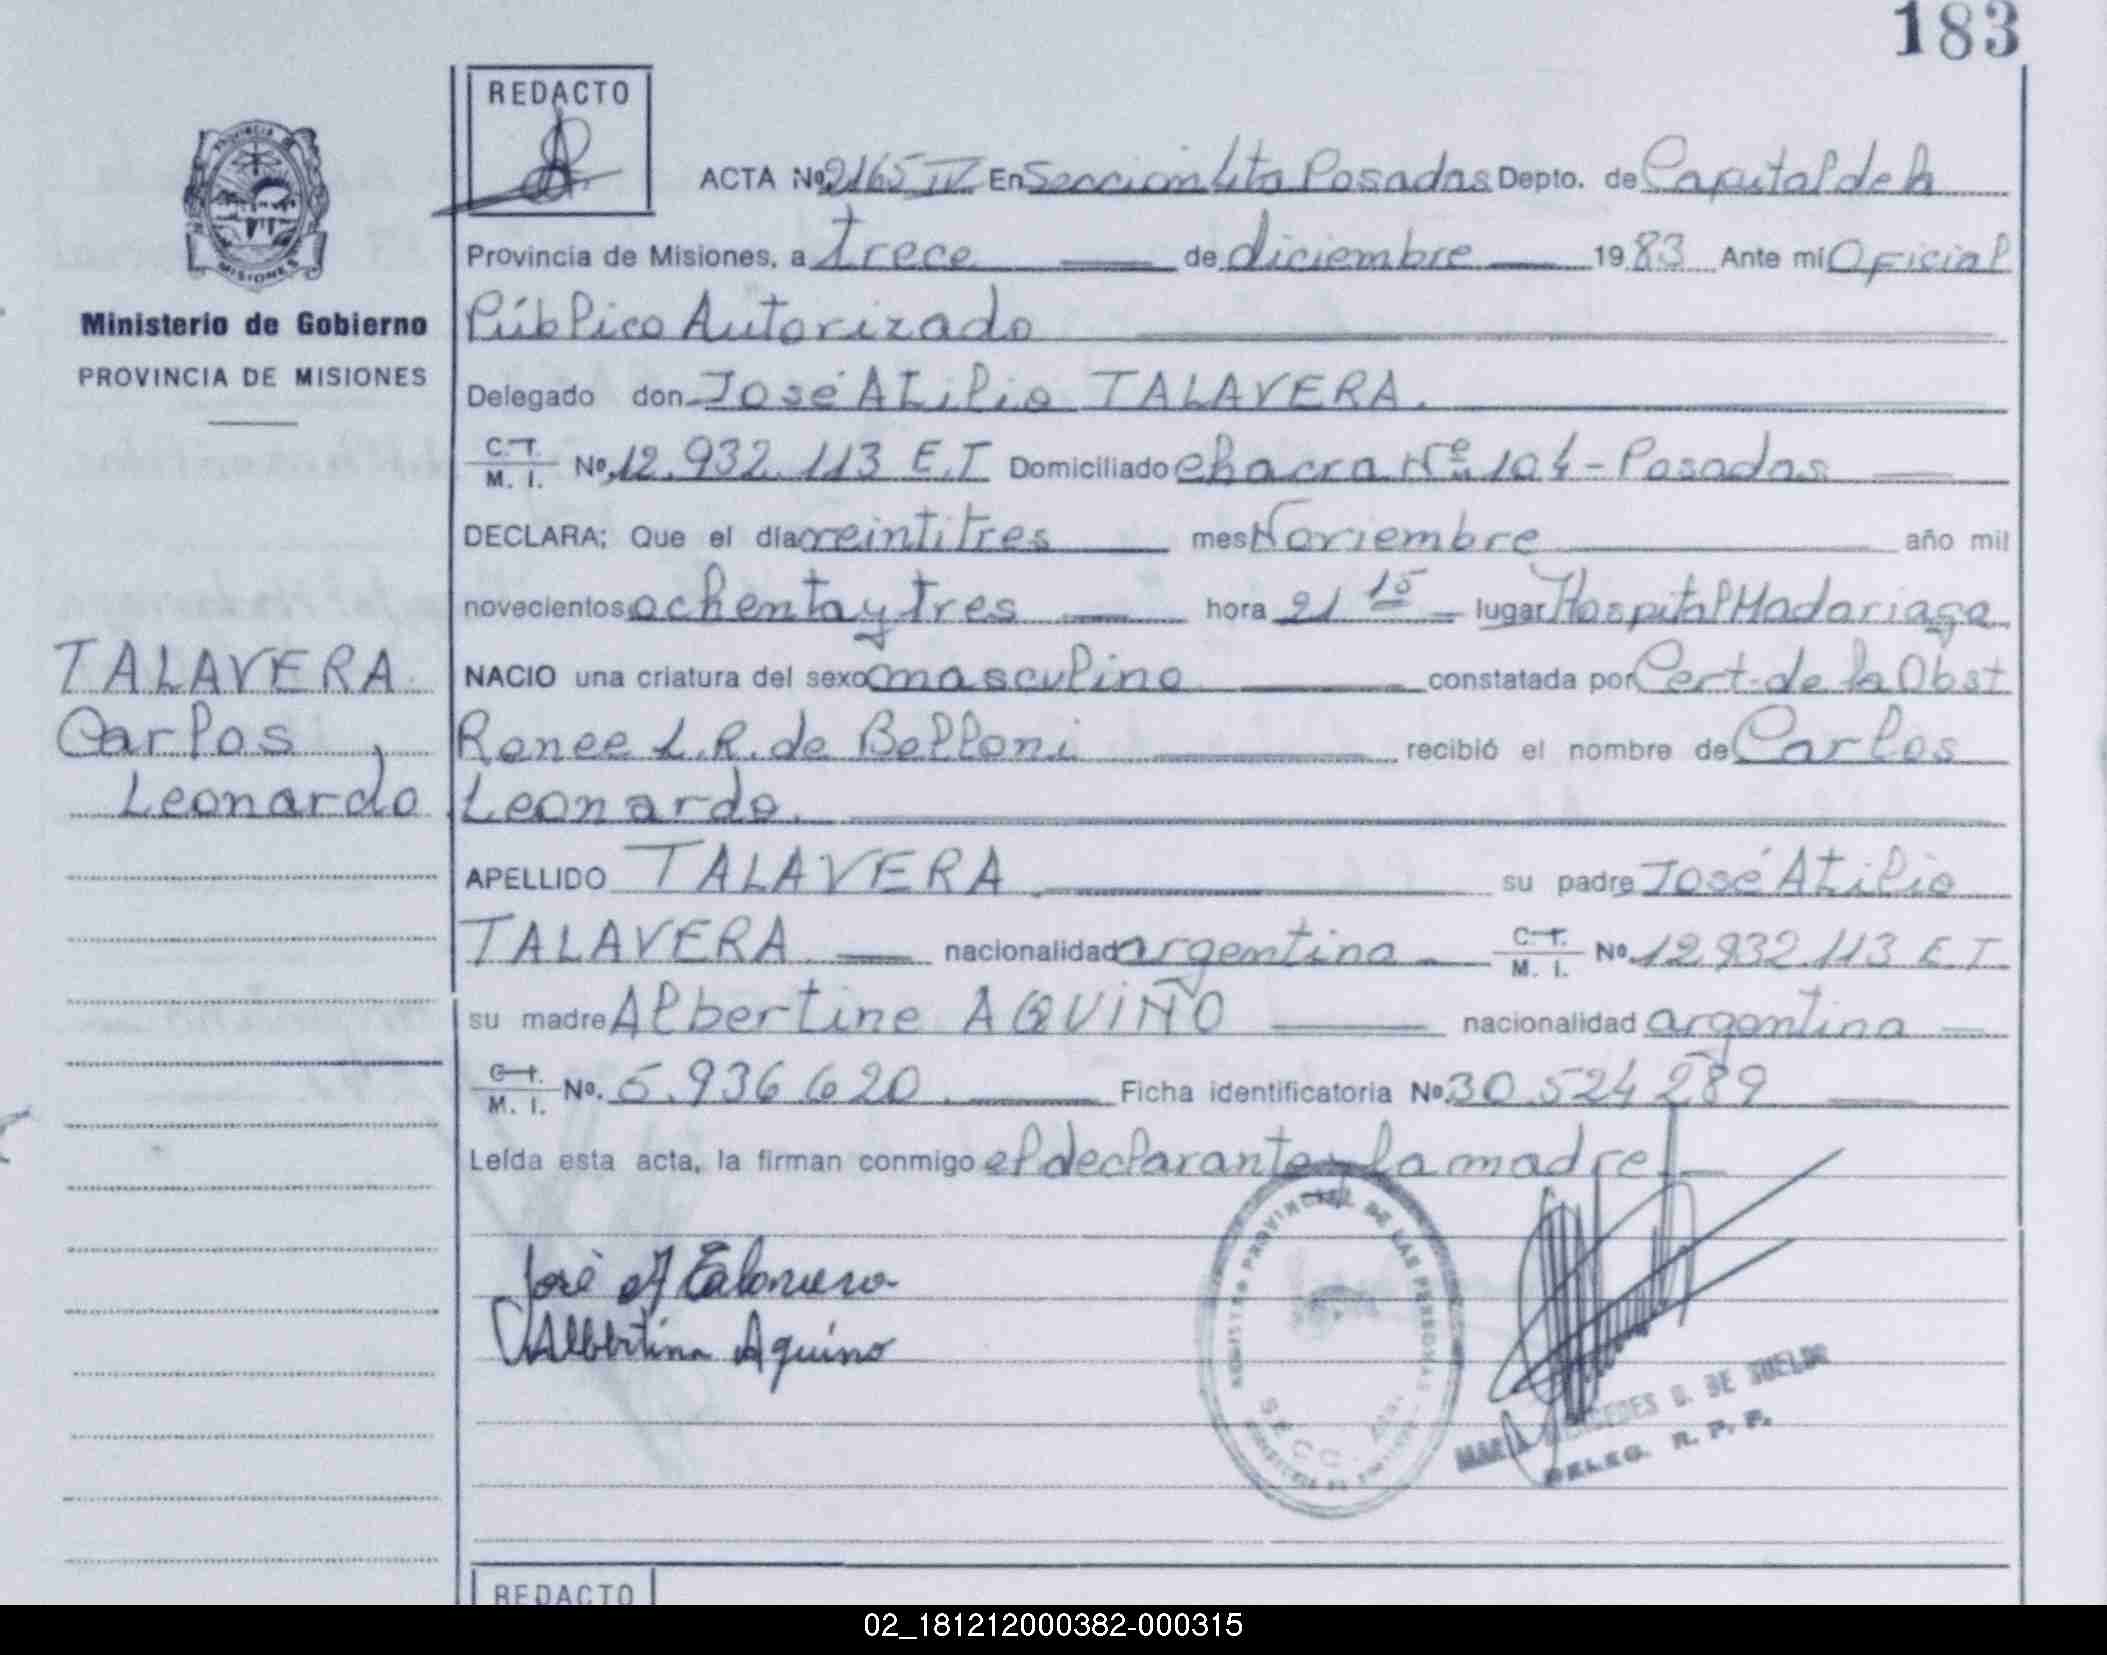 183
REDACTO
PROVINCIA DE
MISIONES
Ministerio de Gobierno
PROVINCIA DE MISIONES
ACTA Nº 2165 IV En Sección 4ta Posadas Depto. de Capital de la
Provincia de Misiones, a trece de diciembre 1983 Ante mí Oficial
Público Autorizado
Delegado don José Atilio TALAVERA.
C.T. M. I. Nº 12.932.113 E.T Domiciliado Chacra Nº 104 - Posadas
DECLARA; Que el día veintitres mes Noviembre año mil
novecientos ochenta y tres hora 21 15 lugar Hospital Madariaga
NACIO una criatura del sexo masculino constatada por Cert. de la Obst
Renee L.R. de Belloni recibió el nombre de Carlos
Leonardo.
TALAVERA
Carlos
Leonardo
APELLIDO TALAVERA su padre José Atilio
TALAVERA nacionalidad argentina C.T. M. I. Nº 12.932.113 E.T
su madre Albertine AQUIÑO nacionalidad argentina
C.T. M. I. Nº. 5.936.620. Ficha identificatoria Nº 30.524.289
Leída esta acta, la firman conmigo el declarante y la madre
José A Talavera
Albertina Aquino
REGISTRO PROVINCIAL DE LAS PERSONAS
SECC.
MARIA MERCEDES G. DE
DELEG. R. P. P.
REDACTO
02_181212000382-000315